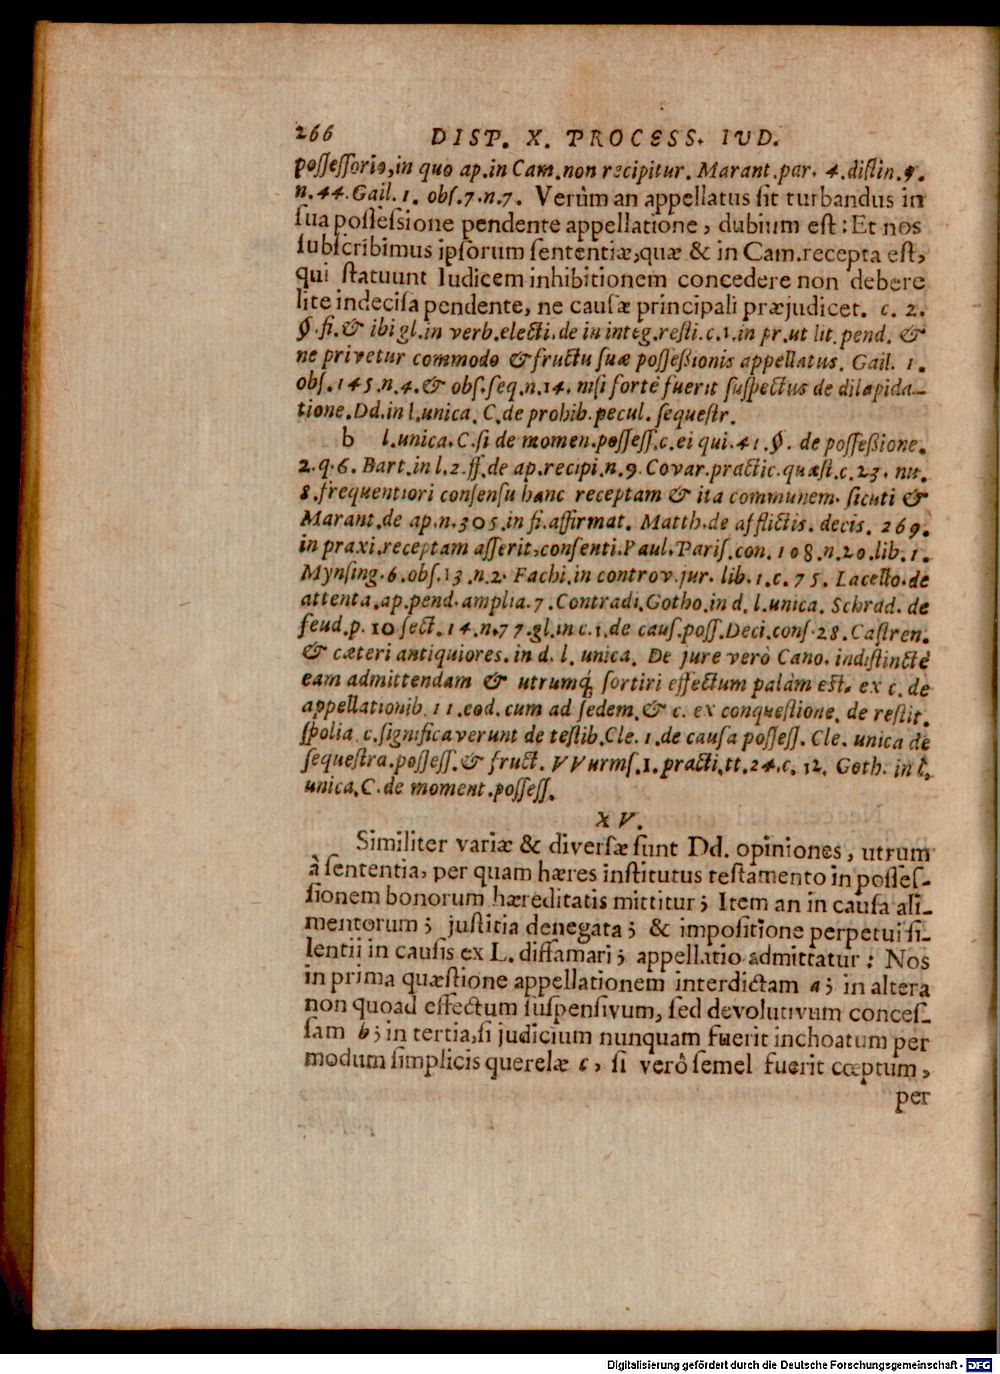 266 DISP. X. PROCESS. IVD.
poſſeſſorio,in quo ap.in Cam.non recipitur. Marant.par. 4.diſtin.9.
n.44.Gail.1. obſ.7.n.7. Verùm an appellatus ſit turbandus in
ſua poſſeſsione pendente appellatione, dubium eſt: Et nos
ſubſcribimus ipſorum ſententiæ,quæ & in Cam.recepta eſt,
qui ſtatuunt Iudicem inhibitionem concedere non debere
lite indeciſa pendente, ne cauſæ principali præjudicet. c. 2.
§.fi.& ibi gl.in verb.electi.de in integ.reſti.c.1.in pr.ut lit.pend. &
ne privetur commodo & fructu ſuæ poſſeßionis appellatus. Gail. 1.
obſ.145.n.4.& obſ.ſeq.n.14. niſi fortè fuerit ſuſpectus de dilapida-
tione.Dd.in l.unica. C.de prohib.pecul. ſequeſtr.
b l.unica.C.ſi de momen.poſſeſſ.c.ei qui.41.§. de poſſeßione.
2.q.6. Bart.in l.2.ff.de ap.recipi.n.9.Covar.practic.quæſt.c.23. nu.
8.frequentiori conſenſu hanc receptam & ita communem. ſicuti &
Marant.de ap.n.305.in fi.affirmat. Matth.de afflictis. decis. 269.
in praxi.receptam aſſerit,conſenti.Paul.Pariſ.con.108.n.20.lib.1.
Mynſing.6.obſ.13.n.2. Fachi.in controv.jur. lib.1.c.75. Lacello.de
attenta.ap.pend.amplia.7.Contradi.Gotho.in d. l.unica. Schrad. de
feud.p.10 ſect.14.n.77.gl.in c.1.de cauſ.poſſ.Deci.conſ.28.Caſtren.
& cæteri antiquiores.in d. l. unica. De jure verò Cano. indiſtinctè
eam admittendam & utrumq́; ſortiri effectum palàm eſt. ex c. de
appellationib.11.eod.cum ad ſedem.& c. ex conqueſtione. de reſtit.
ſpolia.c.ſignificaverunt de teſtib.Cle.1.de cauſa poſſeſſ. Cle. unica de
ſequeſtra.poſſeſſ.& fruct. VVurmſ.1.practi.tt.24.c.12. Goth.in l.
unica.C.de moment.poſſeſſ.
XV.
Similiter variæ & diverſæ ſunt Dd. opiniones, utrum
à ſententia, per quam hæres inſtitutus teſtamento in poſſeſ-
ſionem bonorum hæreditatis mittitur; Item an in cauſa ali-
mentorum; juſtitia denegata; & impoſitione perpetui ſi-
lentii in cauſis ex L. diffamari; appellatio admittatur: Nos
in prima quæſtione appellationem interdictam a; in altera
non quoad effectum ſuſpenſivum, ſed devolutivum conceſ-
ſam b; in tertia,ſi judicium nunquam fuerit inchoatum per
modum ſimplicis querelæ c, ſi verò ſemel fuerit cœptum,
per
Digitalisierung gefördert durch die Deutsche Forschungsgemeinschaft - DFG